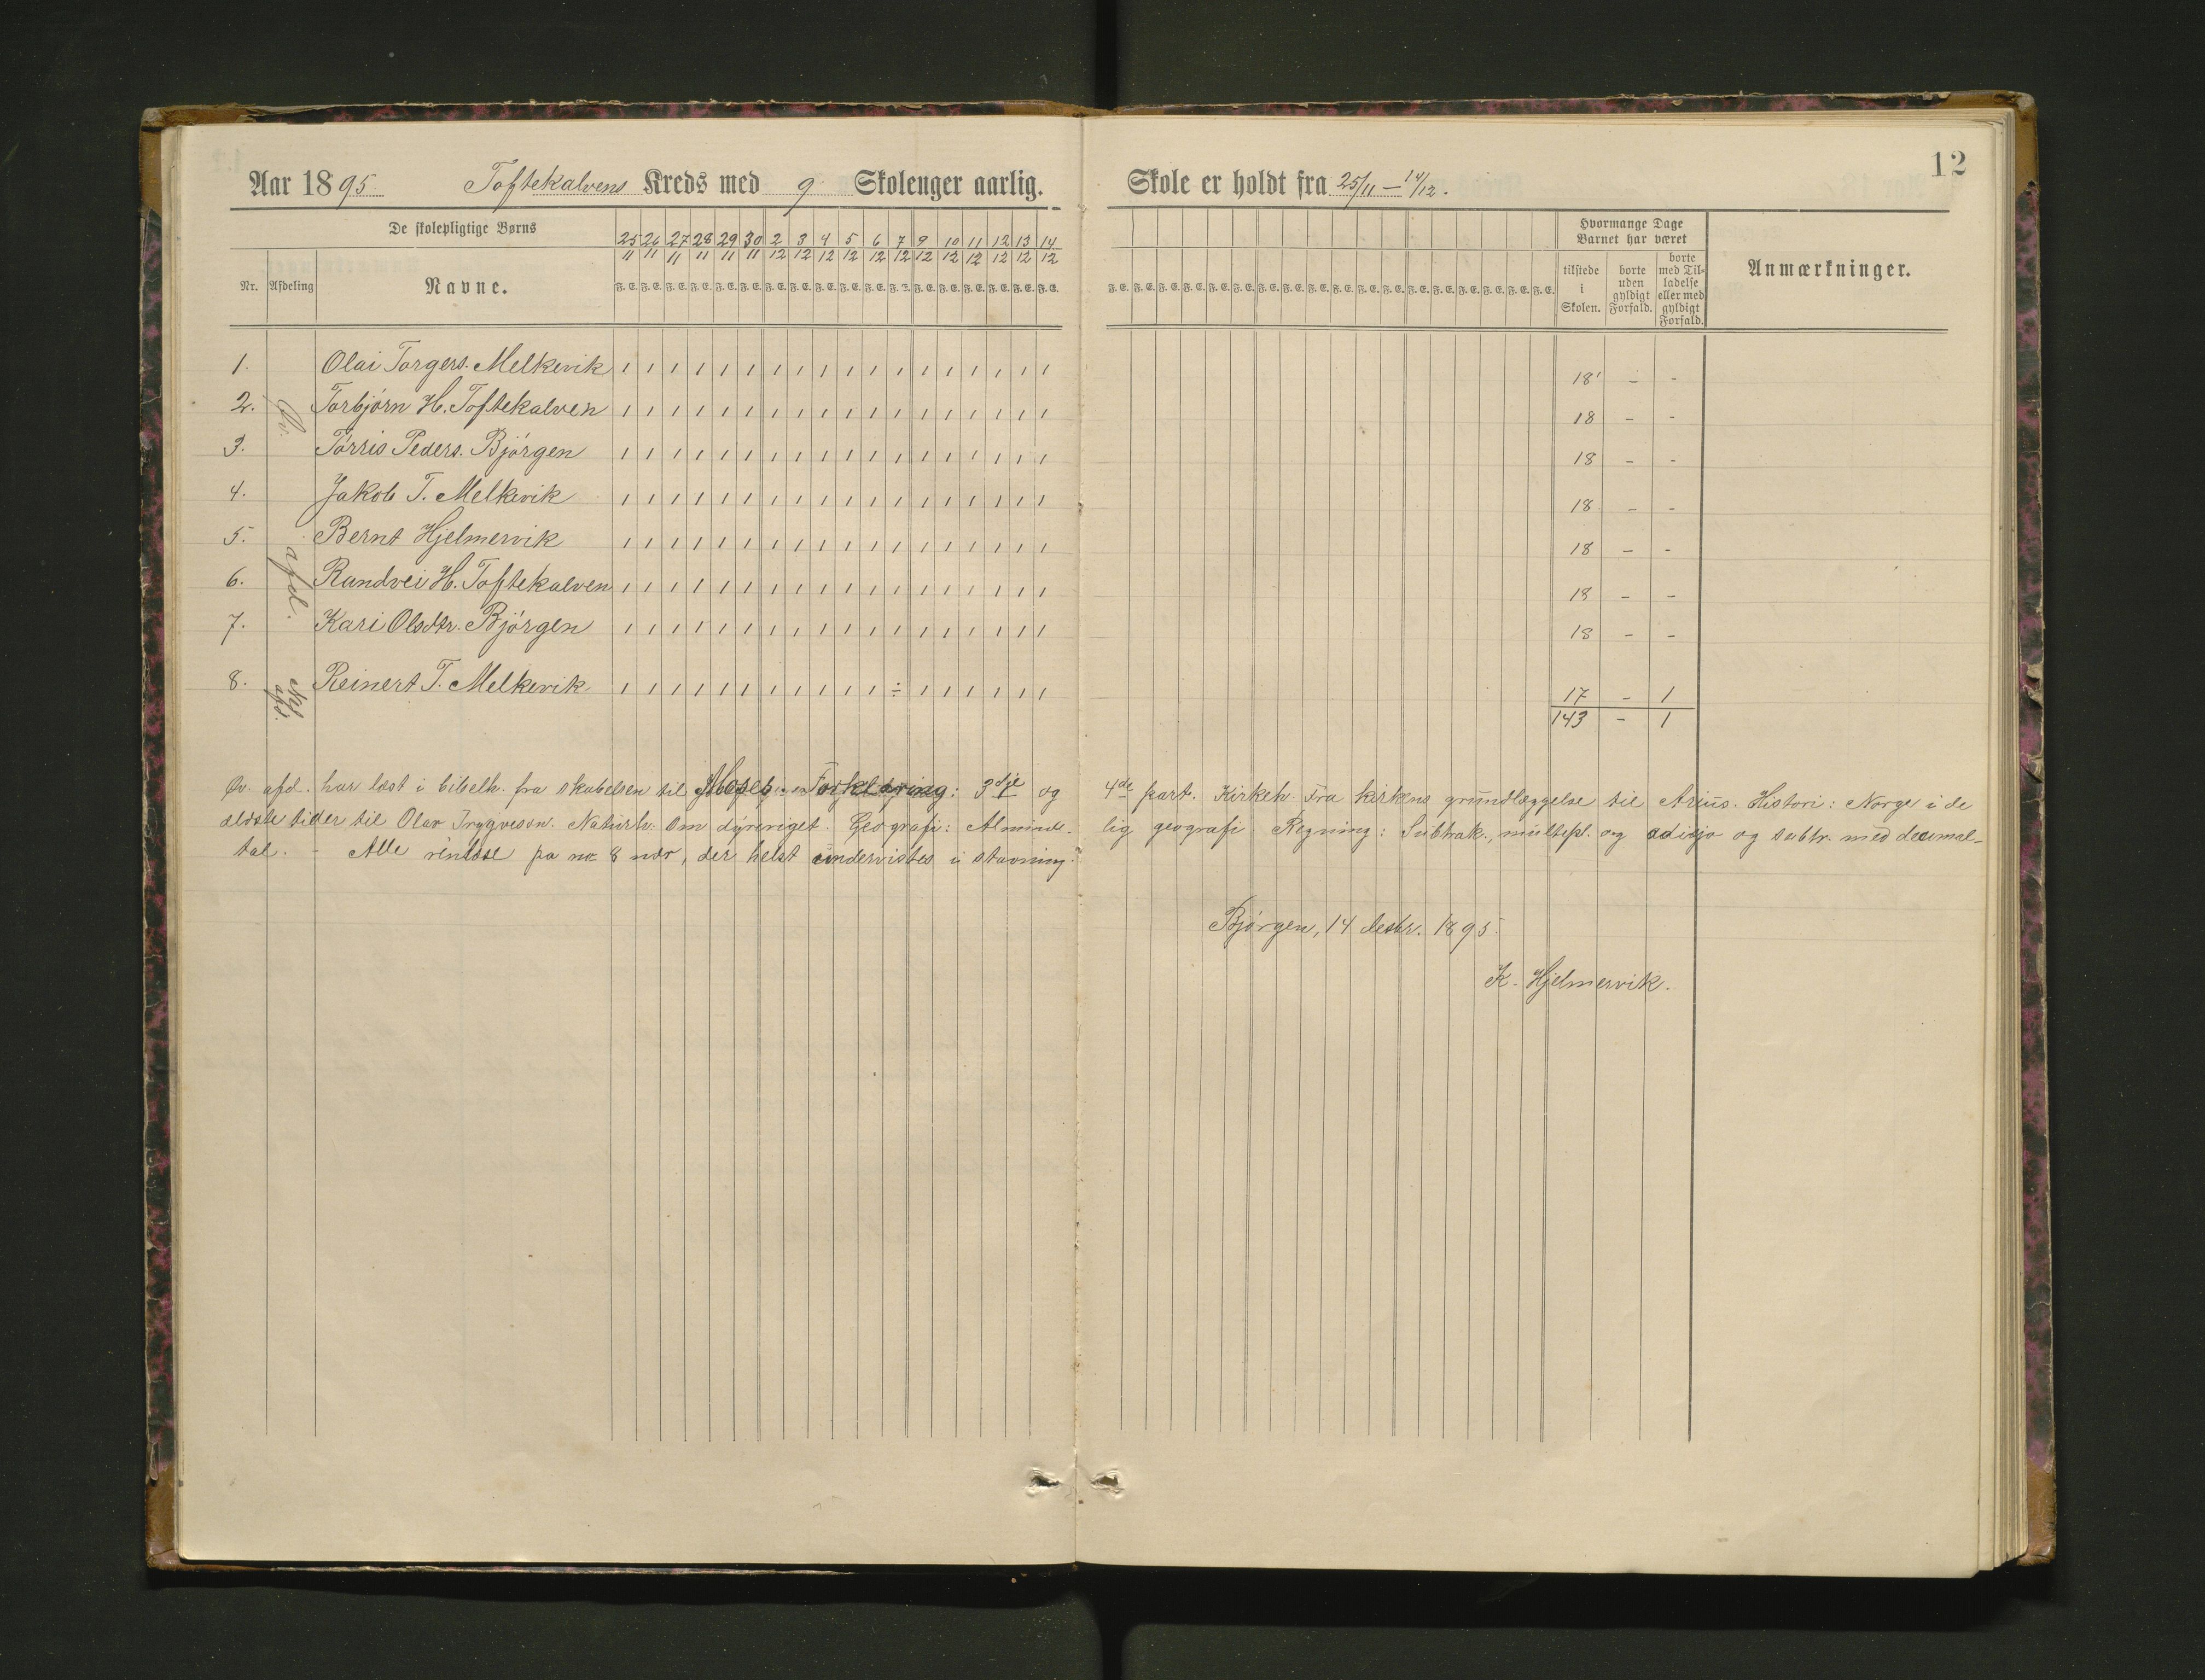 12
Aar 1895. Toftekalvens Kreds med 9 Skoleuger aarlig. Skole er holdt fra 25/11 — 14/12.
De skolepligtige Børns
Nr. Afdeling Navne.
25/11 26/11 27/11 28/11 29/11 30/11 2/12 3/12 4/12 5/12 6/12 7/12 9/12 10/12 11/12 12/12 13/12 14/12
F. E. F. E. F. E. F. E. F. E. F. E. F. E. F. E. F. E. F. E. F. E. F. E. F. E. F. E. F. E. F. E. F. E. F. E.
F. E. F. E. F. E. F. E. F. E. F. E. F. E. F. E. F. E. F. E. F. E. F. E. F. E. F. E. F. E. F. E. F. E. F. E.
Hvormange Dage
Barnet har været
tilstede i Skolen.
borte uden gyldigt Forfald.
borte med Til-
ladelse eller med gyldigt Forfald.
Anmærkninger.
Øv. afd.
1. Olai Torgers. Melkevik 1 1 1 1 1 1 1 1 1 1 1 1 1 1 1 1 1 1 18 - -
2. Torbjørn H. Toftekalven 1 1 1 1 1 1 1 1 1 1 1 1 1 1 1 1 1 1 18 - -
3. Tørris Peders. Bjørgen 1 1 1 1 1 1 1 1 1 1 1 1 1 1 1 1 1 1 18 - -
4. Jakob T. Melkevik 1 1 1 1 1 1 1 1 1 1 1 1 1 1 1 1 1 1 18 - -
5. Bernt Hjelmervik 1 1 1 1 1 1 1 1 1 1 1 1 1 1 1 1 1 1 18 - -
6. Randvei H. Toftekalven 1 1 1 1 1 1 1 1 1 1 1 1 1 1 1 1 1 1 18 - -
7. Kari Olsdtr. Bjørgen 1 1 1 1 1 1 1 1 1 1 1 1 1 1 1 1 1 1 18 - -
Ned. afd.
8. Reinert T. Melkevik 1 1 1 1 1 1 1 1 1 1 1 ÷ 1 1 1 1 1 1 17 - 1
143 - 1
Øv. afd. har læst i bibelh. fra skabelsen til Moses. Forklaring: 3dje og 4de part. Kirkeh. Fra kirkens grundlæggelse til Arius. Histori: Norge i de
ældste tider til Olav Trygveson. Naturh. Om dyreriget. Geografi: Alminde- lig geografi. Regning: Subtrak., multipl. og adisjo og subtr. med decimal-
tal. - Alle rentlæse pa no 8 nær, der helst undervistes i stavning.
Bjørgen, 14 desbr. 1895.
K. Hjelmervik.